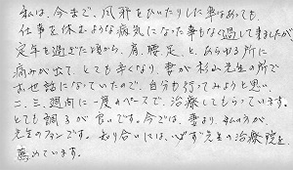 私は、今まで、風邪をひいたりした事はあっても、
仕事を休むような病気になった事もなく過して来ましたが
定年を過ぎた頃から、肩、腰、足と、あらゆる所に
痛みが出て、とても辛くなり、妻が杉山先生の所で
お世話になっていたので、自分も行ってみようと思い、
二、三週間に一度のペースで、治療してもらっています。
とても調子が良いです。今では、妻より、私の方が
先生のファンです。知り合いには、必ず先生の治療院を
薦めています。